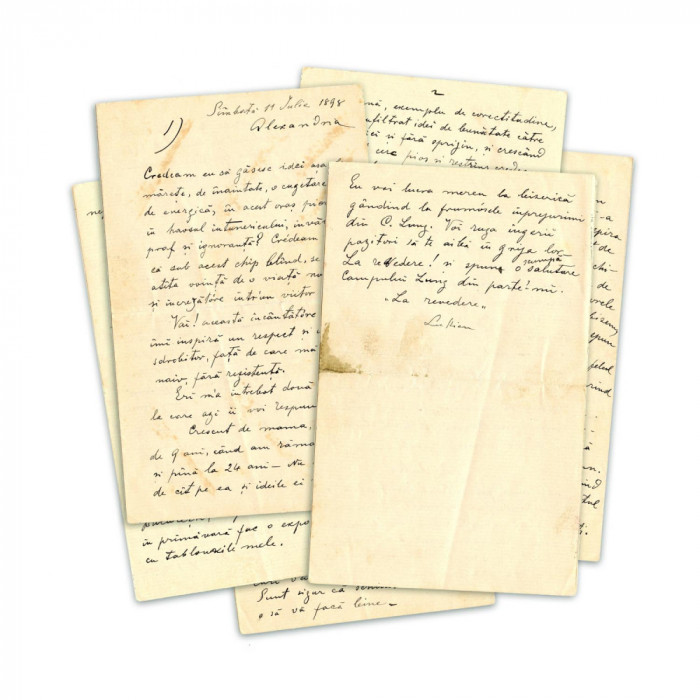 Sîmbătă 11 Iulie 1898
Alexandria
1)
Credeam eu să găsesc idei aşa
măreţe, de înaintate, o cugetare
de energică, în acest oraş
în haosul intunericului, invă
praf şi ignoranţă? Credeam
că sub acest chip blînd, se
atîta voinţă de o viaţă no
şi încrezătóre intr'un viitor
Vai! această incântătóre
îmi inspiră un respect şi
sdrobitor, faţă de care mă
naiv, fără rezistenţă.
Eri m'a intrebat două
la care azi îi voi respun
Crescut de mama,
de 9 ani, când am răma
si pînă la 24 ani – Nu
de cît pe ea şi ideile ei
2
mă, exemplu de corectitudine,
nfiltrat idei de bunătate către
ci şi fără sprijin, şi crescând
pios şi
Eu voi lucra mereu la biserică
gândind la frumósele inprejurimi
din C. Lung. Voi ruga îngerii
pazitori să te aibă în grija lor
La revedere! si spune o salutare
Campului Lung din parte-mi.
„La revedere"
Lukian
-a
spira
e de
chi-
de
rele
spun
rind
ind
tul
in primăvară fac o expo
cu tablourile mele.
Sunt sigur că
să vă facă bine –